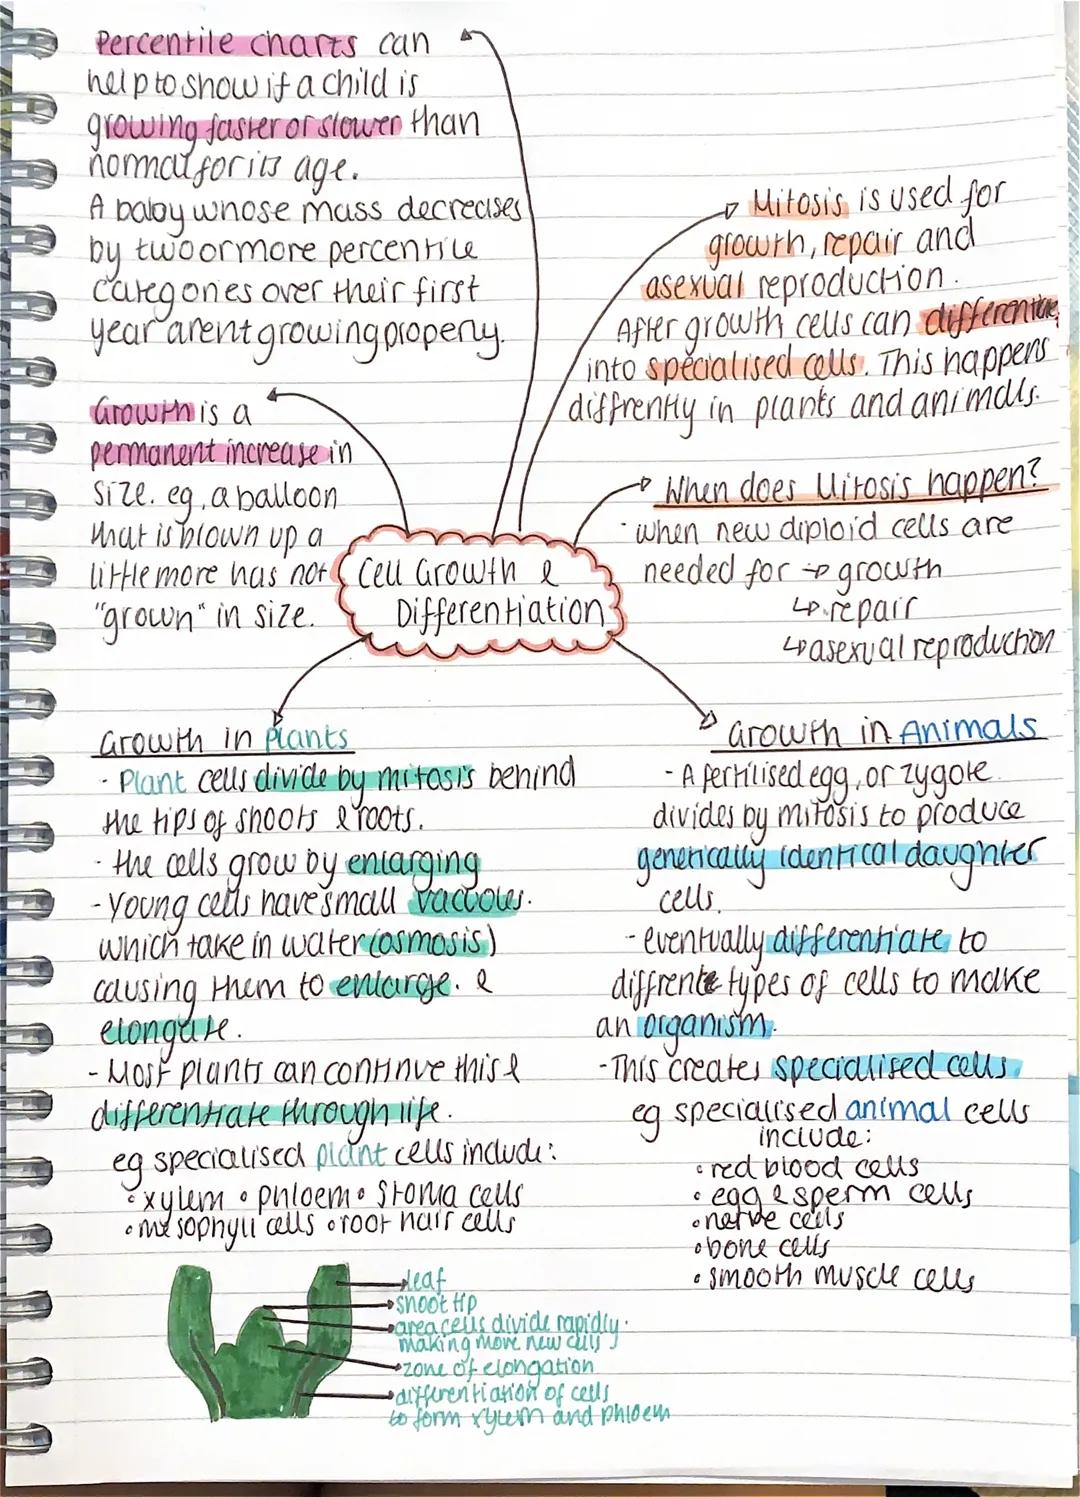 Percentile charts can
help to show if a child is
growing faster or slower than
normal for its age.
A baby whose mass decreases
by two or more percentile
categories over their first
year arent growing properly.
Growth is a
permanent increase in
size. eg, a balloon
that is blown up a
little more has not
"grown" in size.
Mitosis is used for
growth, repair and
asexual reproduction.
After growth cells can differentiate
into specialised cells. This happens
diffrently in plants and animals.
When does Mitosis happen?
· when new diploid cells are
needed for → growth
↳ repair
↳ asexual reproduction
Cell Growth &
Differentiation
Growth in Plants
- Plant cells divide by mitosis behind
the tips of shoots & roots.
- the cells grow by enlarging
- Young cells have small vacuoles.
which take in water (osmosis)
causing them to enlarge. &
elongate.
- Most plants can continue this &
differentiate through life.
eg specialised plant cells include:
• xylem • phloem • stoma cells
• mesophyll cells • root hair cells
Growth in Animals
- A fertilised egg, or zygote
divides by mitosis to produce
genetically identical daughter
cells.
- eventually differentiate to
diffrente types of cells to make
an organism.
- This creates specialised cells
eg specialised animal cells
include:
• red blood cells
• egg & sperm cells
• nerve cells
• bone cells
• smooth muscle cells
leaf
shoot tip
area cells divide rapidly.
making more new cells
zone of elongation
differentiation of cells
to form xylem and phloem